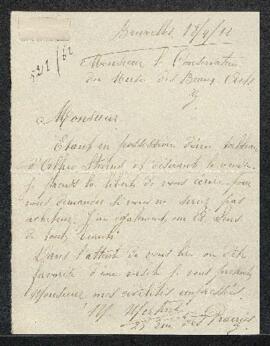 Bruxelles 18/9/12
521/62
Monsieur le Conservateur
du Musée des Beaux-Arts
Monsieur
Etant en possession d'un tableau
d'Alfred Stevens et désirant le vendre
je prends la liberté de vous écrire pour
vous demander si vous ne seriez pas
acheteur. J'ai également
de toute beauté
Dans l'attente de vous lire ou être
favorisé d'une visite je vous présente
Monsieur mes civilités empressées
25 Rue des